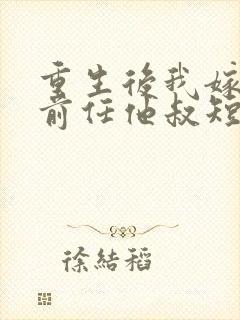 重生後我嫁
前任他叔短
徐結稻